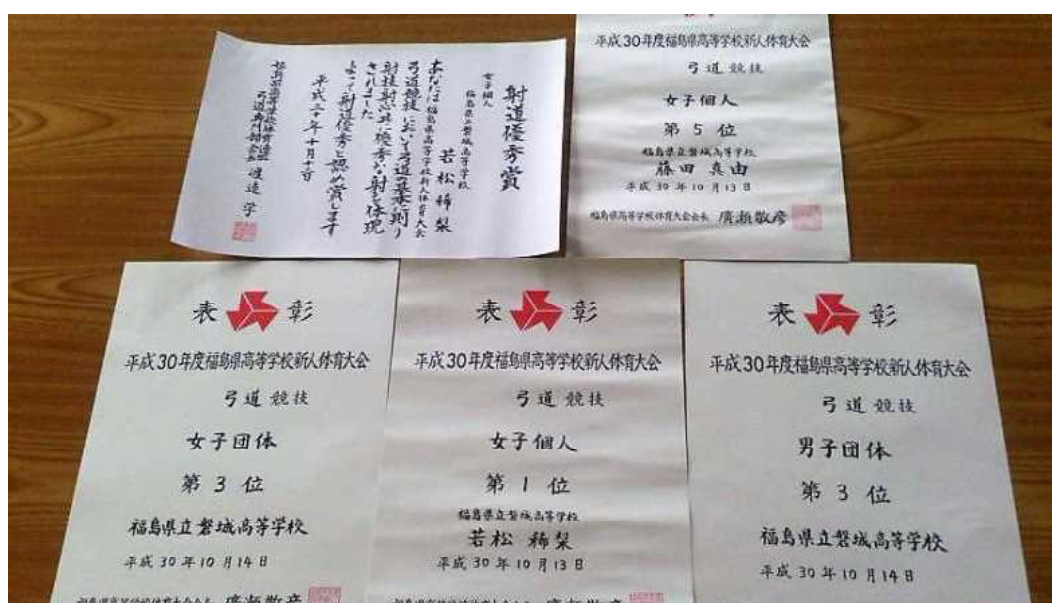 射道優秀賞
女子個人
福島県立磐城高等学校
若松 稀梨
あなたは福島県高等学校新人体育大会
弓道競技において弓道の基本に則り
射技射心共に優秀な射を体現
されました
よって射道優秀と認め賞します
平成三十年十月十三日
福島県高等学校体育連盟
弓道専門部会長 渡邉 学
平成30年度福島県高等学校新人体育大会
弓道競技
女子個人
第5位
福島県立磐城高等学校
藤田 真由
平成30年10月13日
福島県高等学校体育大会会長 廣瀬敬彦
表彰
平成30年度福島県高等学校新人体育大会
弓道競技
女子団体
第3位
福島県立磐城高等学校
平成30年10月14日
福島県高等学校体育大会会長 廣瀬敬彦
表彰
平成30年度福島県高等学校新人体育大会
弓道競技
女子個人
第1位
福島県立磐城高等学校
若松 稀梨
平成30年10月13日
福島県高等学校体育大会会長 廣瀬敬彦
表彰
平成30年度福島県高等学校新人体育大会
弓道競技
男子団体
第3位
福島県立磐城高等学校
平成30年10月14日